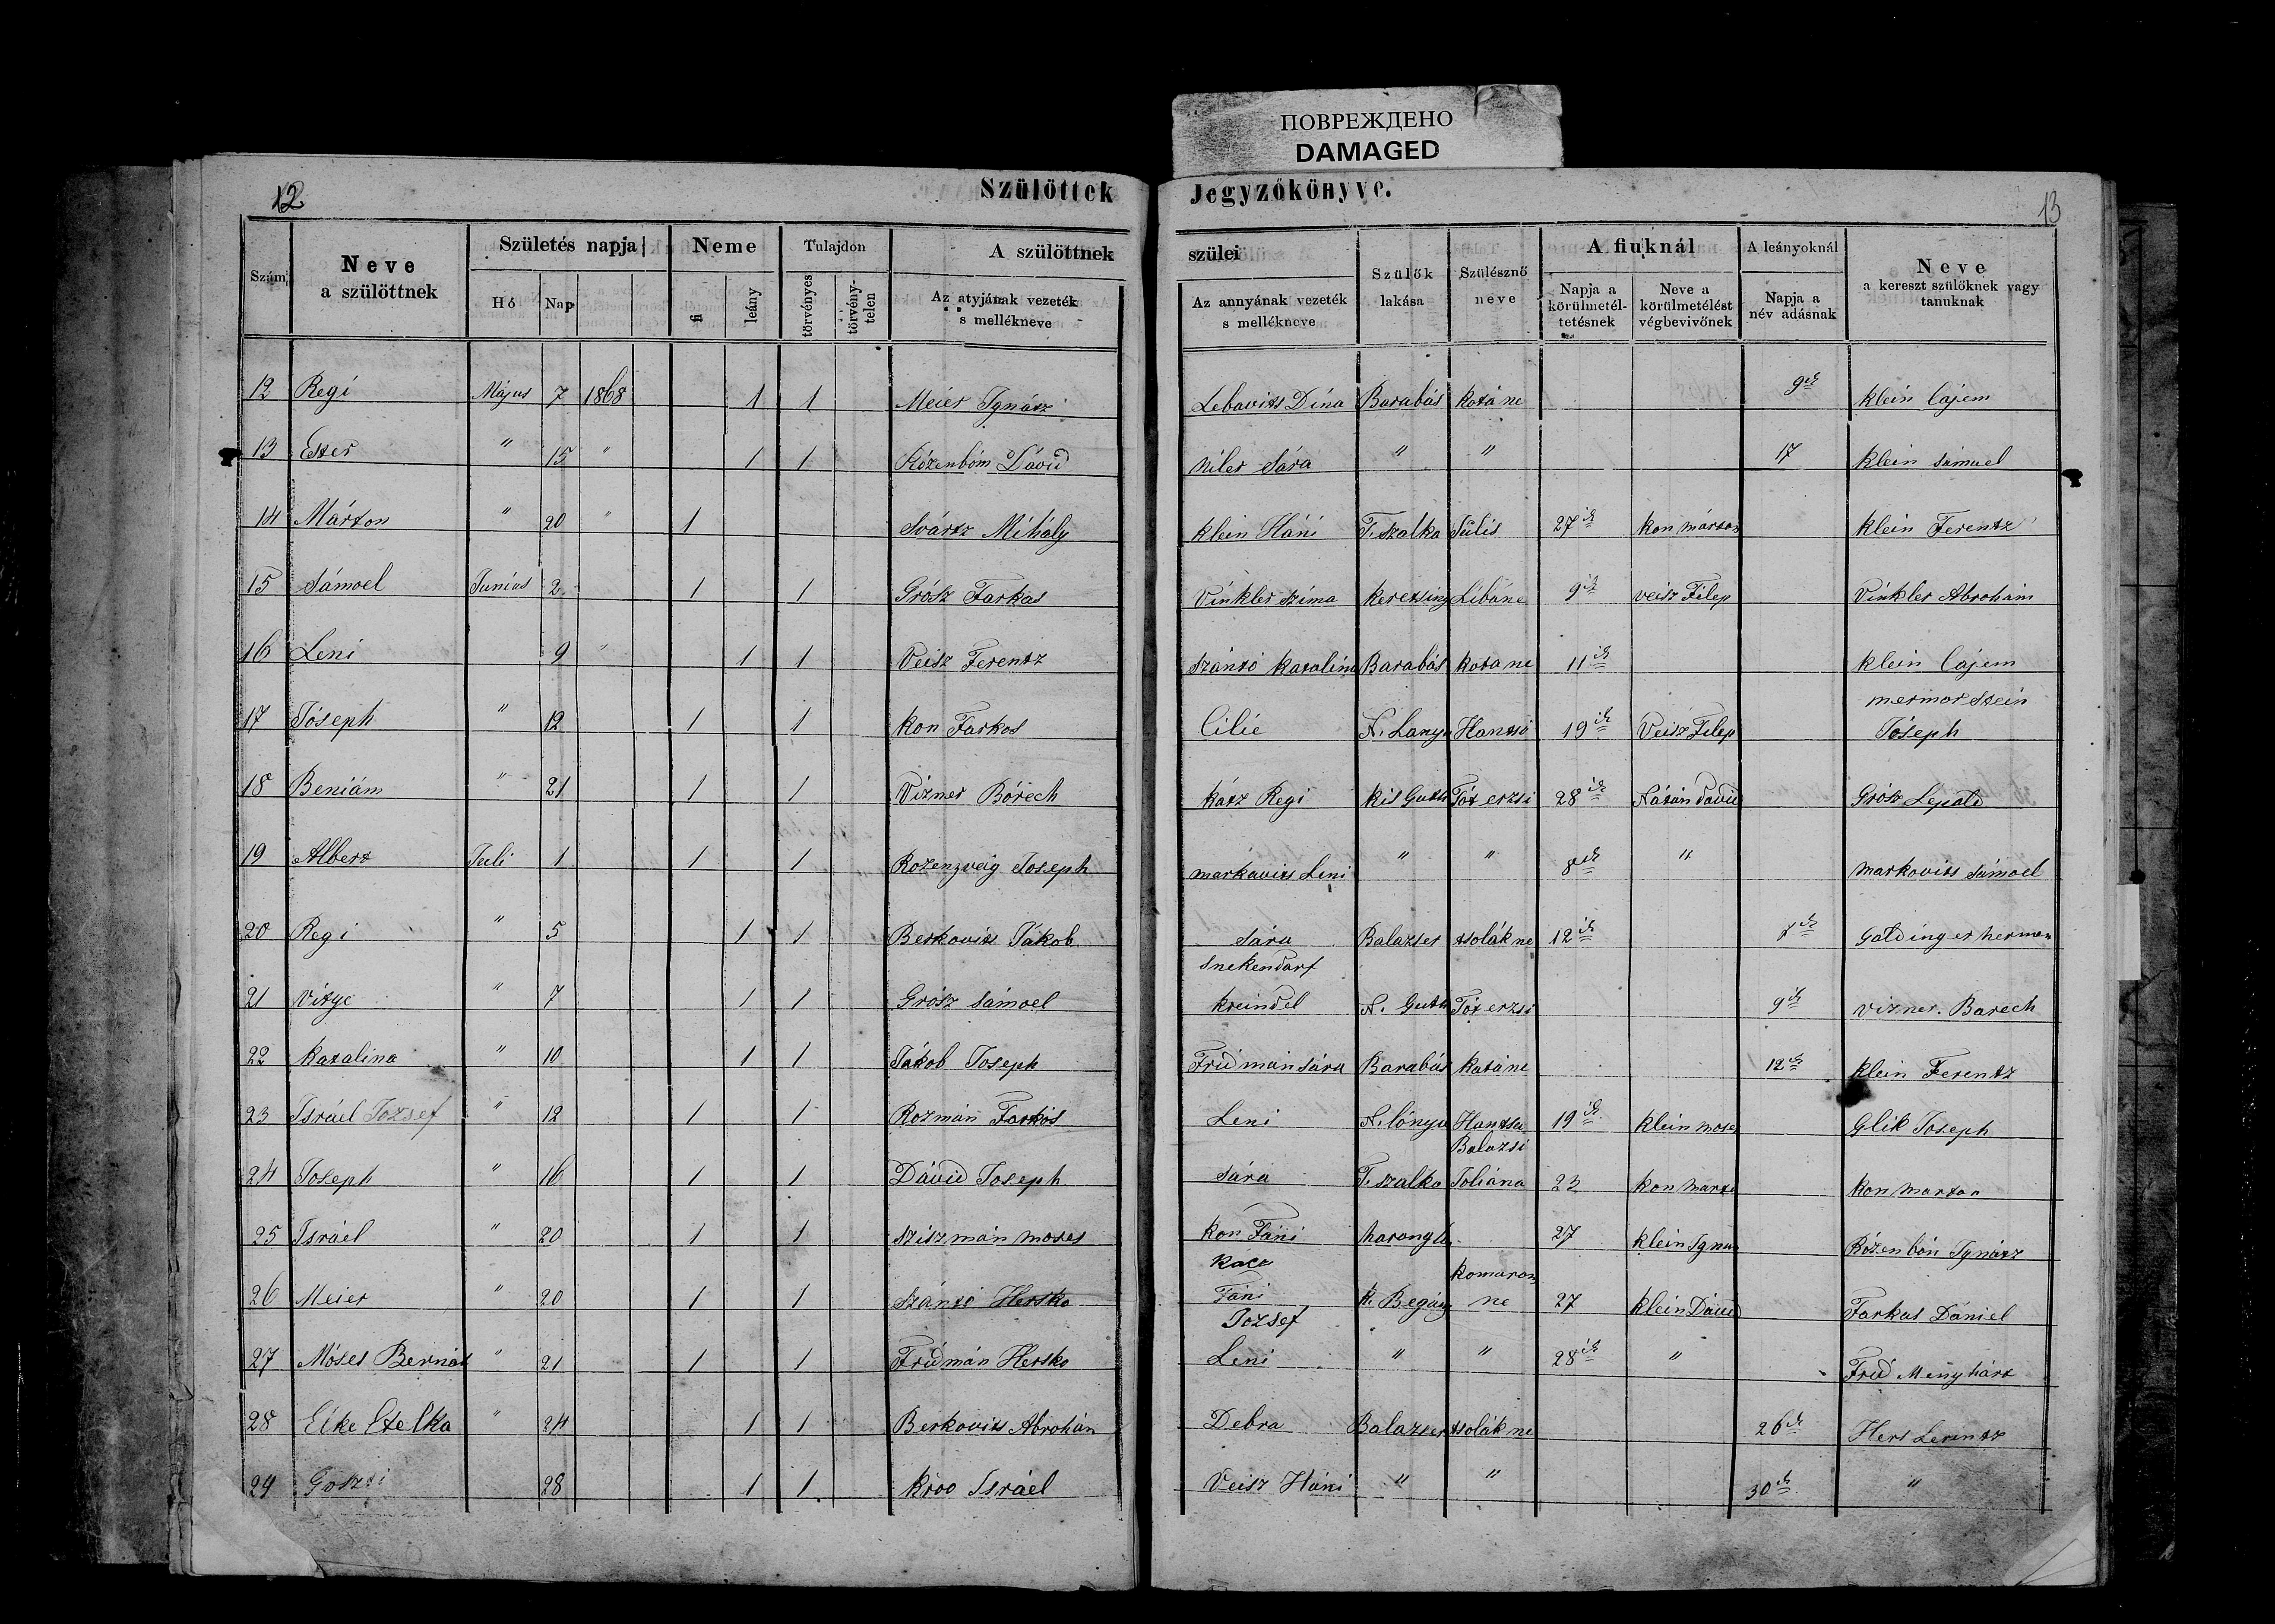 ПОВРЕЖДЕНО
DAMAGED
12
Szülöttek Jegyzőkönyve.
13
Szám
Neve a szülöttnek
Születés napja
Hó Nap
Neme
fi leány
Tulajdon
törvényes törvénytelen
A szülöttnek szülei
Az atyjának vezeték s mellékneve
Az annyának vezeték s mellékneve
Szülők lakása
Szülésznő neve
A fiuknál
Napja a körülmetéltetésnek
Neve a körülmetélést végbevivőnek
A leányoknál
Napja a név adásnak
Neve a kereszt szülőknek vagy tanuknak
12 Regi Május 7 1868 1 1 Meier Ignátz Lebavits Dina Barabás kotáne 9ik klein Lájem
13 Ester " 15 " 1 1 Rózenbóm Dávid Niler Sára " " 17 klein Sámuel
14 Márton " 20 " 1 Svártz Mihály klein Háni T. szalka Júlis 27ik kon márton klein Ferentz
15 Sámoel Junius 2 1 1 Grósz Farkas Vinkler Száma keretsing Libáne 9ik veisz Filep Vinkler Abrohám
16 Leni 9 " 1 1 Veisz Ferentz Szántó katalina Barabás kotane 11ik klein Lájem
17 Jóseph " 12 1 1 kon Farkos Cilie N. Lanya Hantsó 19ik Veisz Filep mermor Stein Jóseph
18 Beniám " 21 1 1 Vizner Bórech kátz Regi kis Guth Tót erzsi 28ik Nátán david Grósz Lepold
19 Albert Juli 1 1 1 Rozenzveig Joseph markovits Leni " " 8ik " markovits Sámoel
20 Regi " 5 1 1 Berkovits Jákob Sára Balazser tsolák ne 12ik 7ik Goldinger herman
21 vitye " 7 1 1 Grósz Sámoel Snekendarf kreindel N. Guth Tót erzsi 9ik vizner. Barech
22 katalina " 10 1 1 Jákob Joseph Fridmán Sára Barabás katáne 12ik klein Ferentz
23 Isráel Jozsef " 12 1 1 Rozmán Farkós Leni N. lónya Hantsa 19ik klein moses Glik Joseph
24 Joseph " 16 1 1 Dávid Joseph Sára T. szalka Balazsi Joliána 23 kon marto kon marton
25 Isráel " 20 1 1 Sziszmán moses kon Fáni harangláb 27 klein Ignas Rózenbón Ignátz
26 Meier " 20 1 1 Szántó Hersko Katz Fáni k. Begány komaromi ne 27 klein Dávid Farkas Dániel
27 Móses Bernát " 21 1 1 Fridmán Hersko Jozsef Leni " " 28ik " Frid Menyhárt
28 Eike Etelka " 24 1 1 Berkovits Abrohán Debra Balazser tsolák ne 26ik Hers Lerintz
29 Goszti 28 1 1 kroo Isráel Veisz Háni " " 30ik "